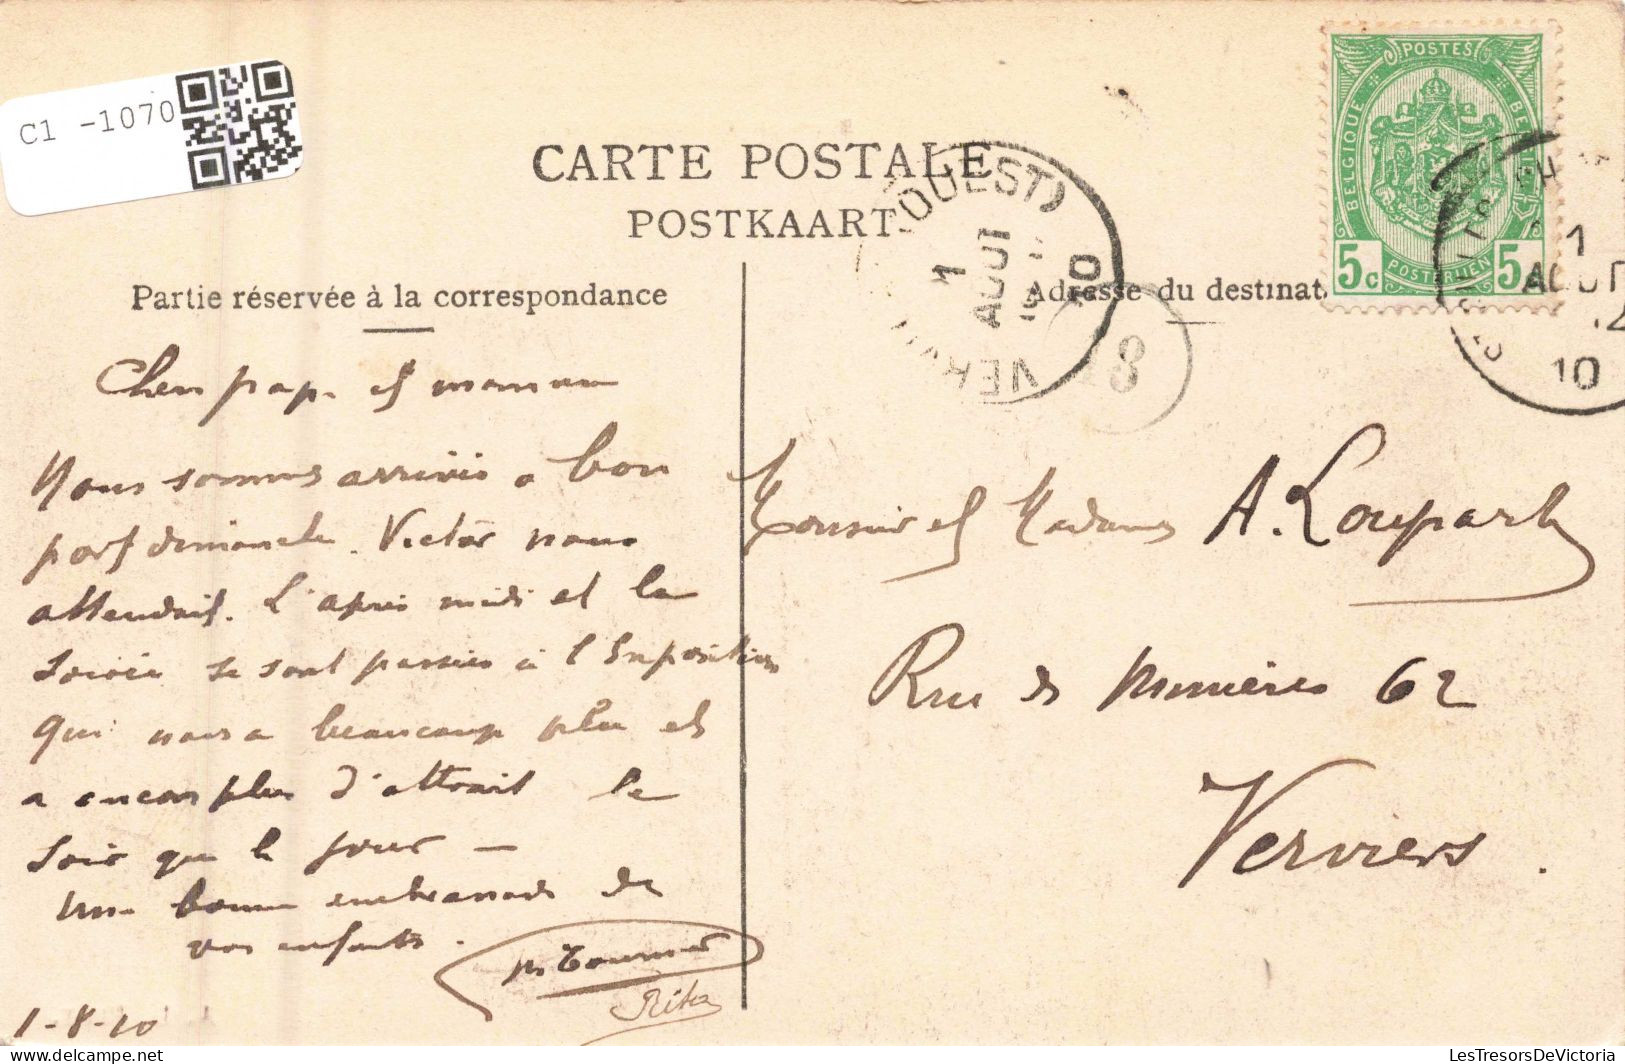 C1 -1070
CARTE POSTALE
POSTKAART
Partie réservée à la correspondance
Adresse du destinat
POSTES
BELGIQUE
BELGIË
5c
POSTERIJEN
5
(OUEST)
1
AOUT
10
VERVI
18
1
AOUT
10
Cher papa et maman
Nous sommes arrivés à bon
port dimanche. Victor nous
attendait. L'après midi et la
soirée se sont passées à l'Exposition
qui nous a beaucoup plu et
a encore plus d'attrait le
soir que le jour —
Une bonne embrassade de
vos enfants.
Rita
1-8-10
Monsieur et Madame A. Loupart
Rue des Minières 62
Verviers.
LesTresorsDeVictoria